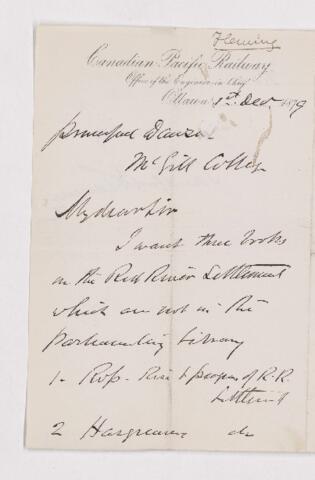 Fleming
Canadian Pacific Railway
Office of the Engineer in Chief
Ottawa 1st Dec. 1879
Principal Dawson
McGill College
My dear Sir
I want three books
on the Red River Settlement
which are not in the
Parliamentary Library
1 - Ross - Rise & progress of R.R.
Settlement
2 Hargrave do